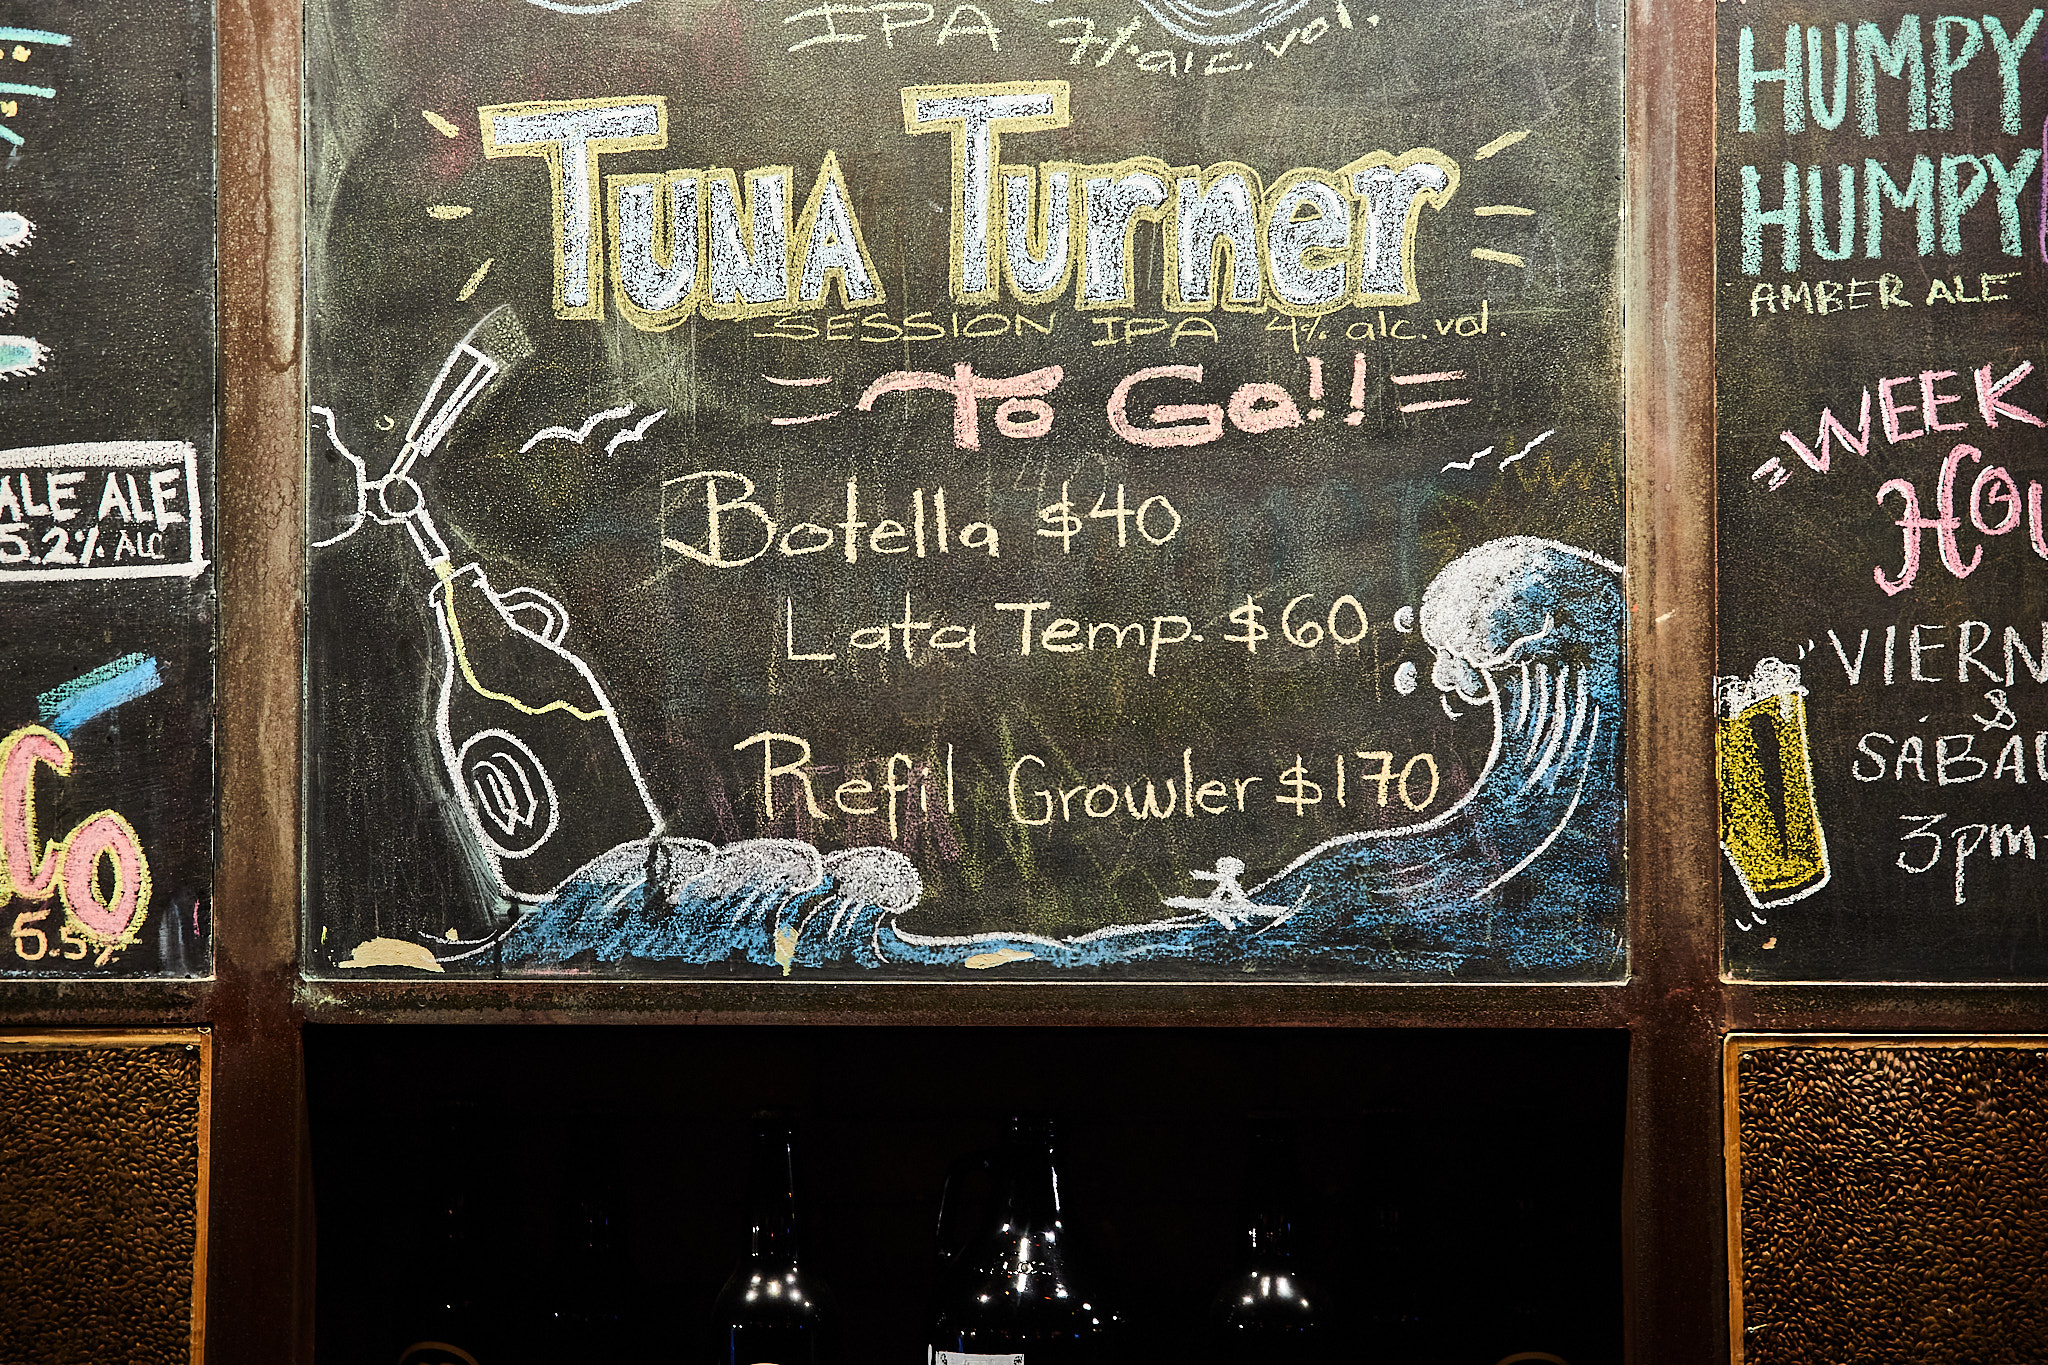 IPA 7% alc. vol.
TUNA TURNER
SESSION IPA 4% alc. vol.
To Go!!
Botella $40
Lata Temp. $60
Refil Growler $170
W
ALE ALE
5.2% ALC
Co
6.5%
HUMPY
HUMPY
AMBER ALE
WEEK
HOU
VIERN
&
SÁBAD
3pm-